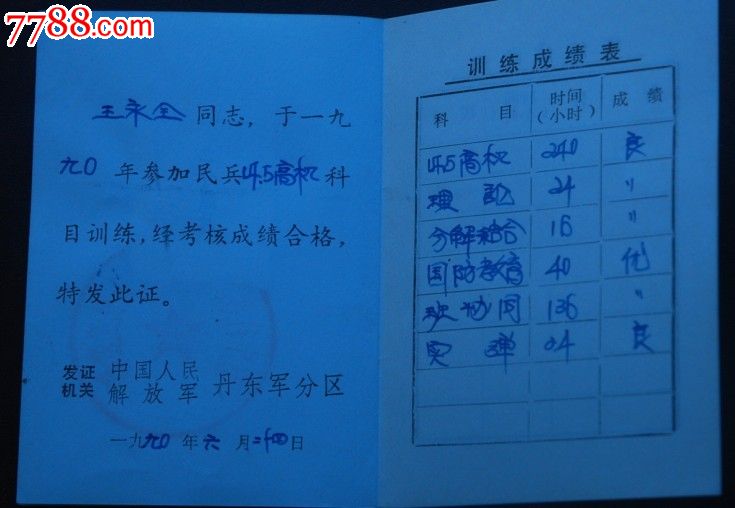 7788.com
王永全同志，于一九
九〇年参加民兵14.5高机科
目训练，经考核成绩合格，
特发此证。
发证机关 中国人民解放军 丹东军分区
一九九〇年六月二十四日
训练成绩表
科目 时间(小时) 成绩
14.5高机 240 良
理论 24 〃
分解结合 16 〃
国防教育 40 优
班协同 136 〃
实弹 24 良